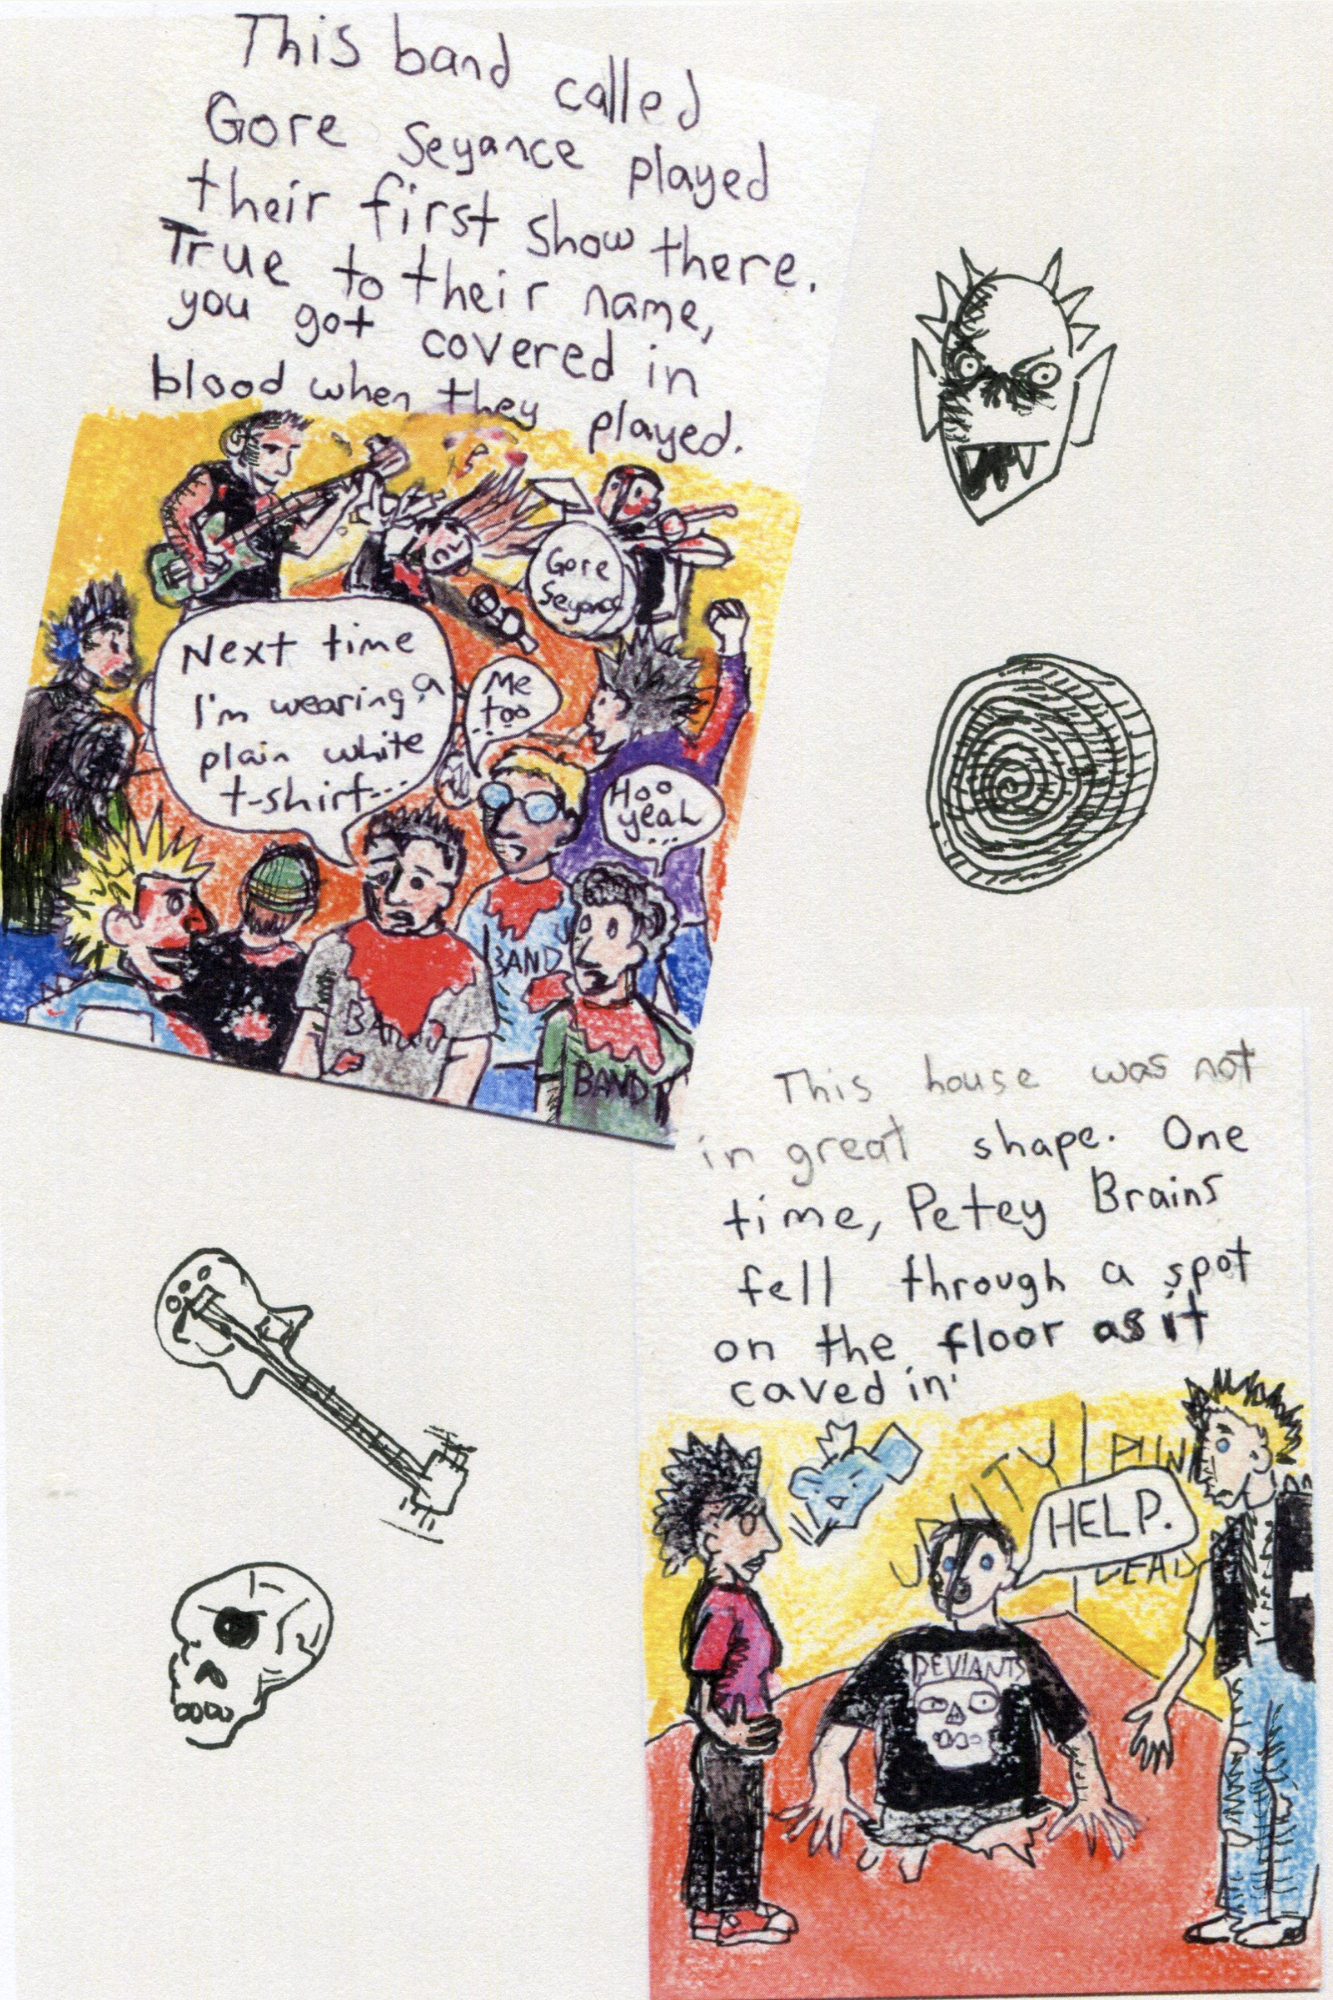 This band called
Gore Seyance played
their first show there.
True to their name,
you got covered in
blood when they played.
Gore
Seyance
Next time
I'm wearing a
plain white
t-shirt...
Me
too...
Hoo
yeah
...
BAND
BAND
BAND
This house was not
in great shape. One
time, Petey Brains
fell through a spot
on the floor as it
caved in.
UNITY
PUNK
DEAD
HELP.
DEVIANTS